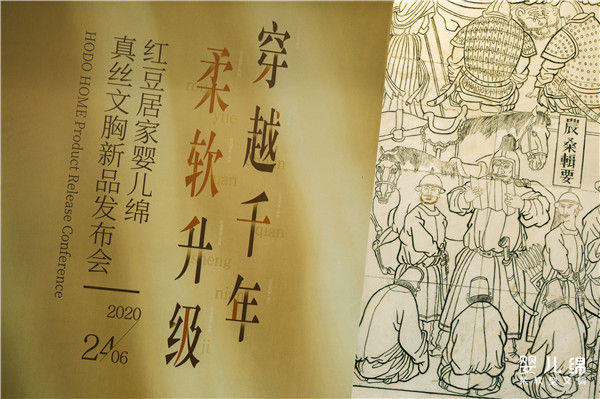 穿越千年
柔软升级
yue
qian
sheng
ji
红豆居家婴儿绵
真丝文胸新品发布会
HODO HOME Product Release Conference
2020
24/06
農桑輯要
婴儿绵